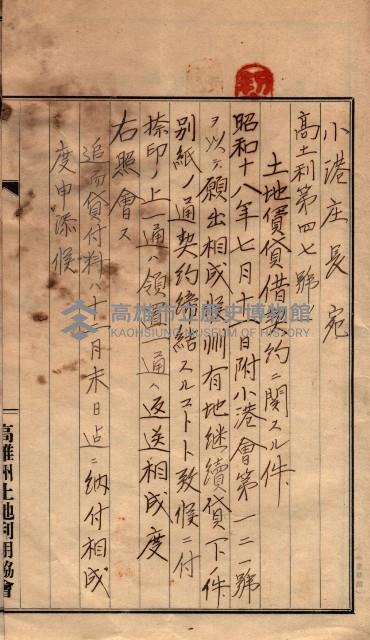 小港庄長宛
高土利第四七號ノ
土地賃貸借契約ニ関スル件
昭和十八年七月十日附小港會第一二一號
ヲ以テ願出相成候州有地継續貸下ノ件
別紙ノ通契約締結スルコトト致候ニ付
捺印ノ上一通ハ領 一通ハ返送相成度
右照會ス
追而貸付料ハ十一月末日迄ニ納付相成
度申添候
高雄州土地利用協會
高雄市立歷史博物館
KAOHSIUNG MUSEUM OF HISTORY